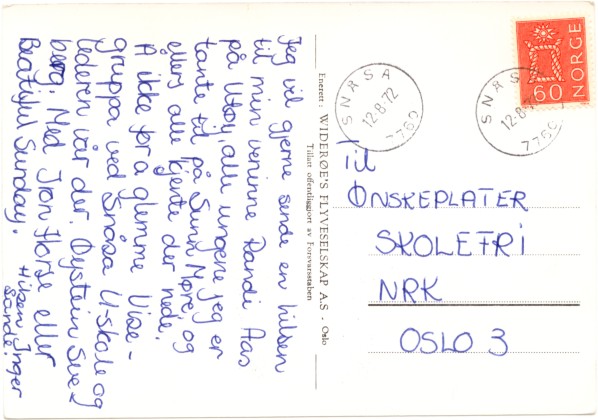 Jeg vil gjerne sende en hilsen
til min veninne Randi Aas
på Utøy, alle ungene jeg er
tante til på Sunn Møre, og
ellers alle kjente der nede.
A ikke for å glemme Vise-
gruppa ved Snåsa U-skole og
lederen vår der. Øystein Sve
berg. Med Iron Horse eller
Beatiful Sunday.
Hilsen Inger
Sande.
Enerett: WIDERØE'S FLYVESELSKAP A.S - Oslo
Tillatt offentliggjort av Forsvarsstaben
SNÅSA
12-8-72
7760
SNÅSA
12-8-7
7760
60 NORGE
Til
ØNSKEPLATER
SKOLEFRI
NRK
OSLO 3